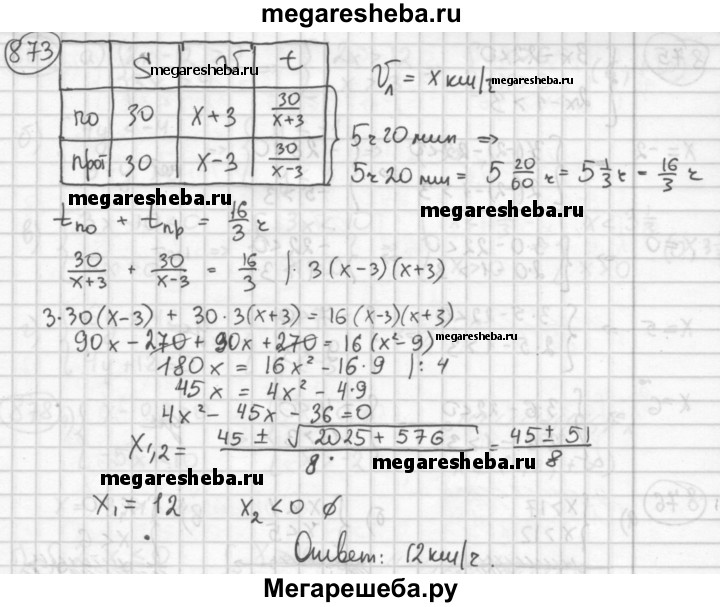 megaresheba.ru
873
S v t
megaresheba.ru
по 30 x+3 30/(x+3)
прот 30 x-3 30/(x-3)
Vл = x км/ч
megaresheba.ru
5ч 20 мин ⇒
5ч 20 мин = 5 20/60 ч = 5 1/3 ч = 16/3 ч
megaresheba.ru
megaresheba.ru
tпо + tпр = 16/3 ч
30/(x+3) + 30/(x-3) = 16/3 |· 3(x-3)(x+3)
3·30(x-3) + 30·3(x+3) = 16(x-3)(x+3)
90x - 270 + 90x + 270 = 16(x²-9)
megaresheba.ru
180x = 16x² - 16·9 |: 4
45x = 4x² - 4·9
4x² - 45x - 36 = 0
x1,2 = (45 ± √(2025 + 576))/8 = (45 ± 51)/8
megaresheba.ru
megaresheba.ru
x1 = 12 x2 < 0 ∅
Ответ: 12 км/ч.
Мегарешеба.ру